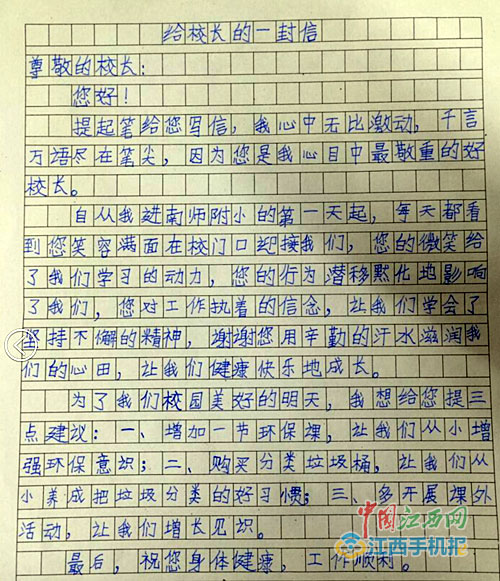 给校长的一封信
尊敬的校长：
您好！
提起笔给您写信，我心中无比激动，千言
万语尽在笔尖，因为您是我心目中最敬重的好
校长。
自从我进南师附小的第一天起，每天都看
到您笑容满面在校门口迎接我们，您的微笑给
了我们学习的动力，您的行为潜移默化地影响
了我们，您对工作执着的信念，让我们学会了
坚持不懈的精神，谢谢您用辛勤的汗水滋润我
们的心田，让我们健康快乐地成长。
为了我们校园美好的明天，我想给您提三
点建议：一、增加一节环保课，让我们从小增
强环保意识；二、购买分类垃圾桶，让我们从
小养成把垃圾分类的好习惯；三、多开展课外
活动，让我们增长见识。
最后，祝您身体健康，工作顺利。
中国江西网
江西手机报